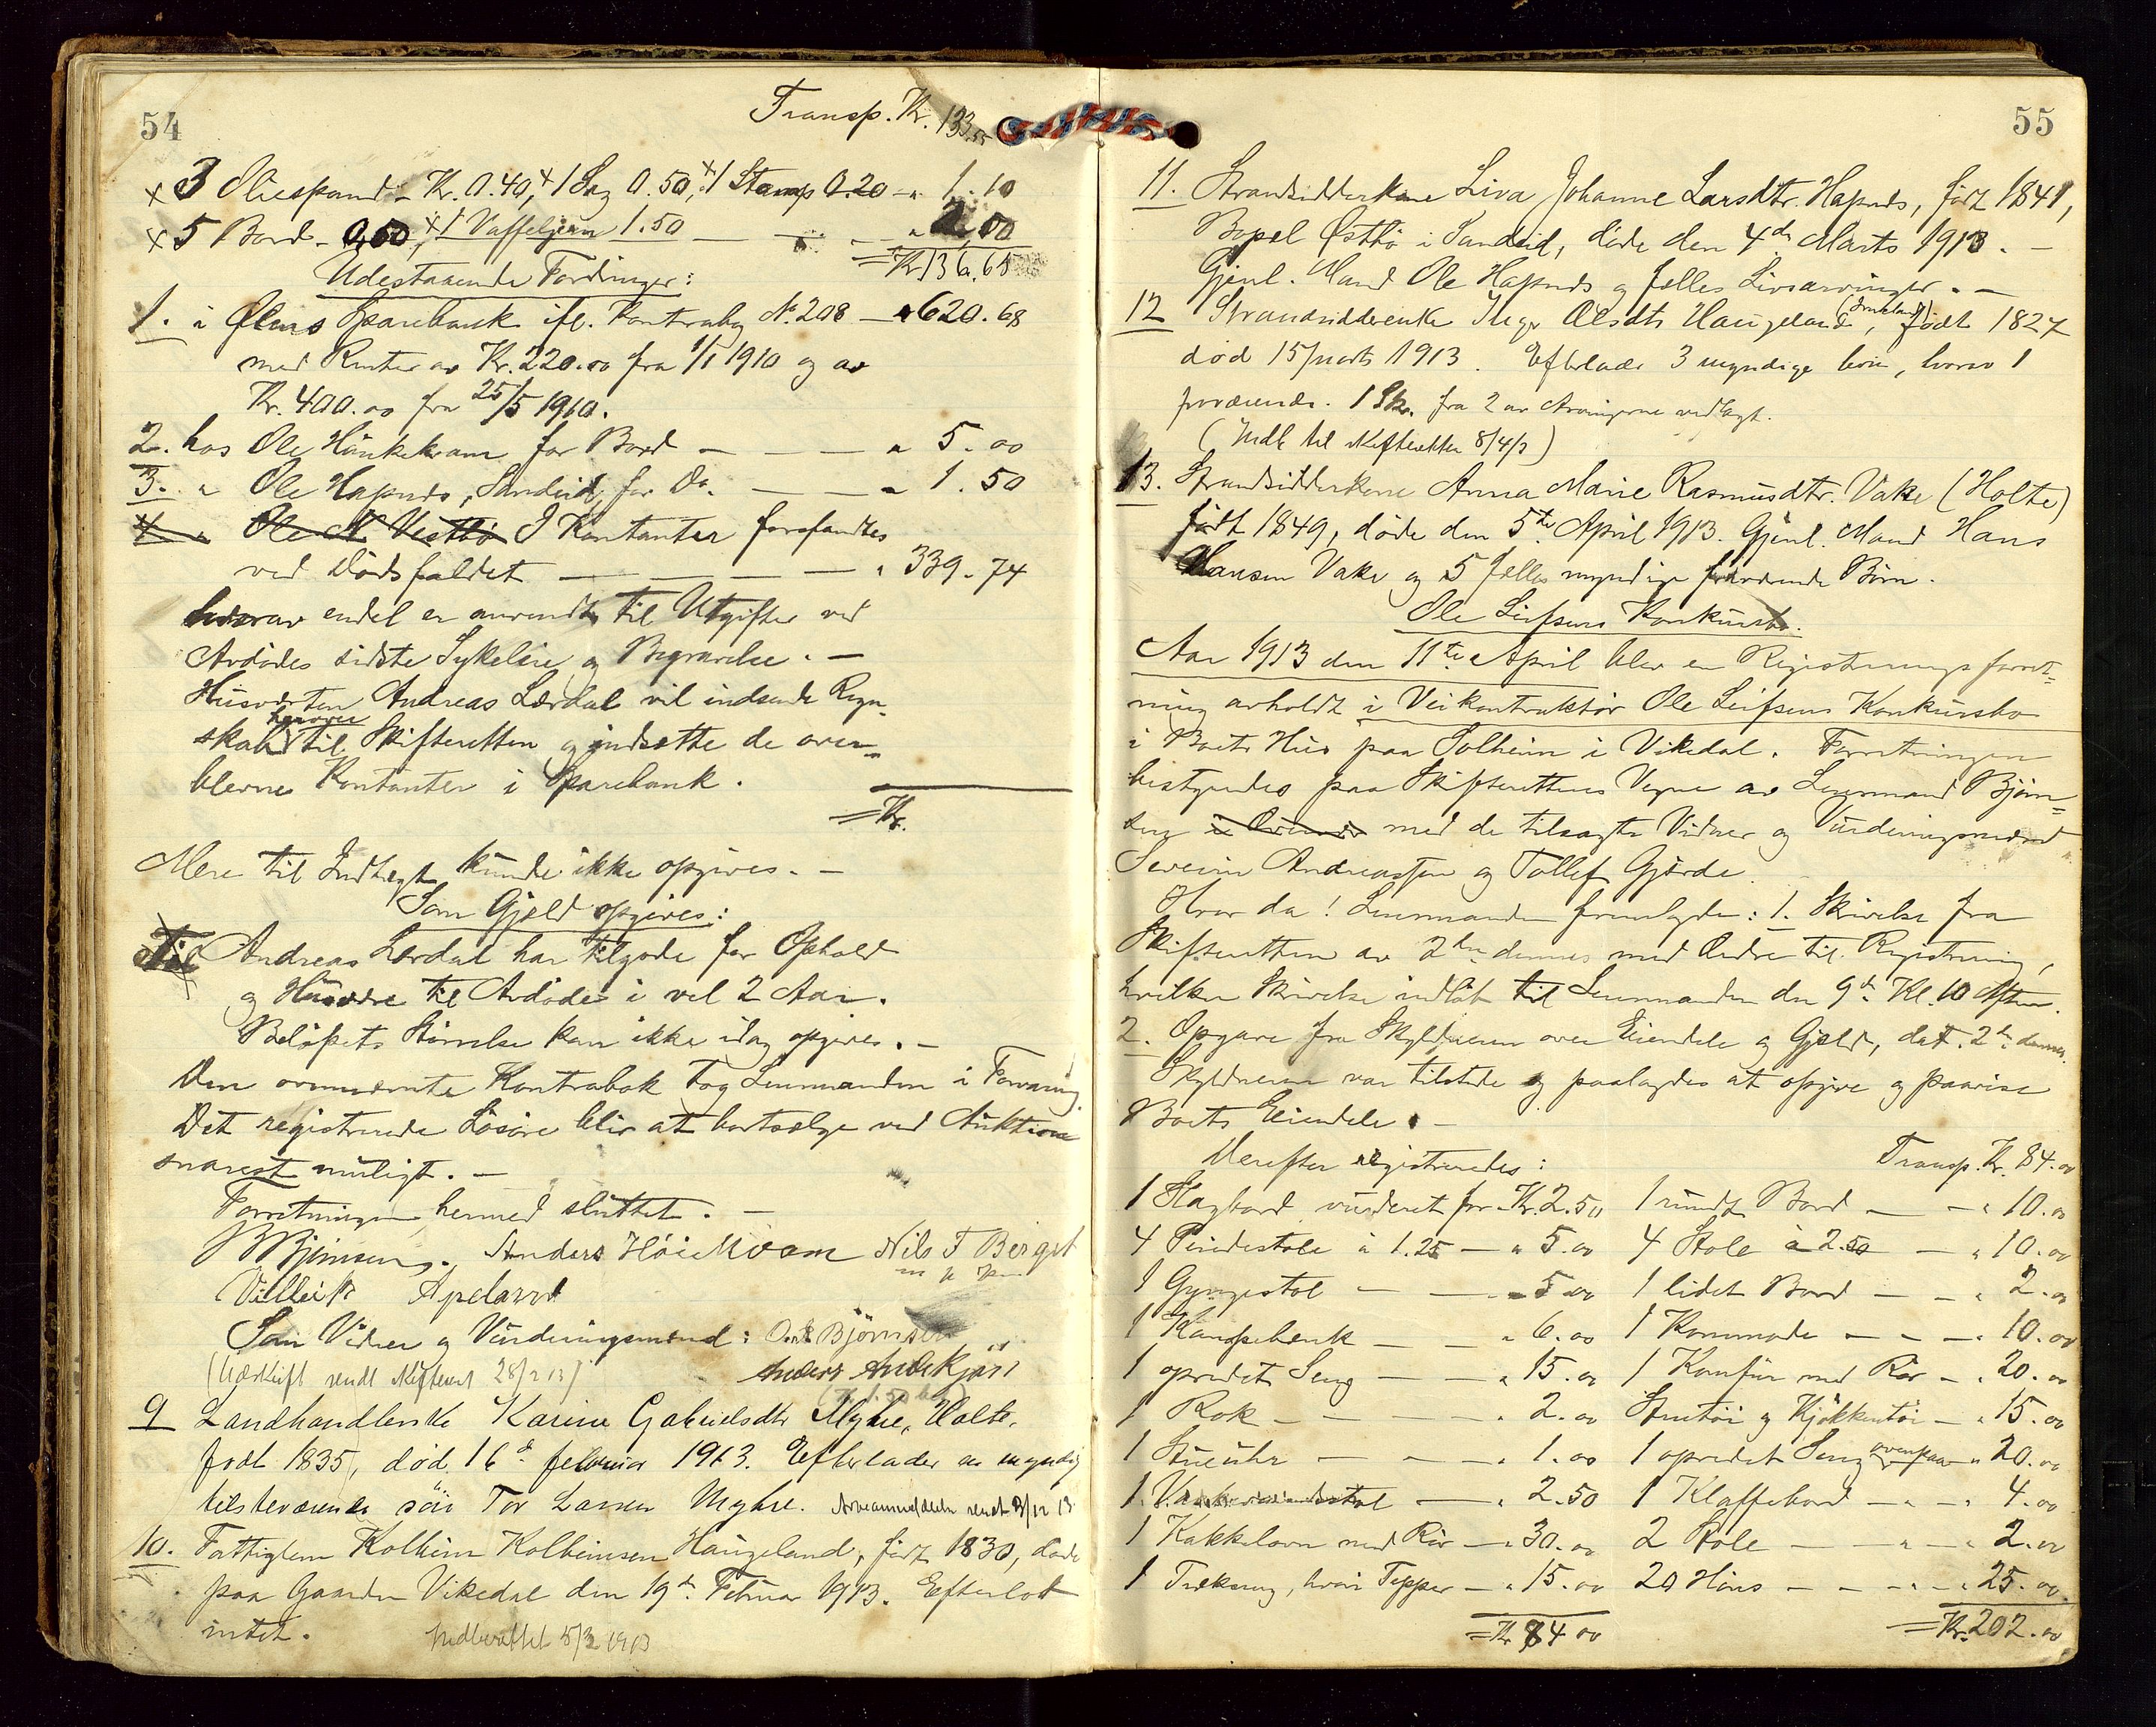 54
Transp. Kr. 133.55
x 3 Oliespand - Kr. 0.40, x 1 Sag 0.50, x 1 Stamp 0.20 - " 1.10
x 5 Bord - 0,50, x 1 Vaffeljern 1.50 — — — " 2,00
= Kr 136.65
Udestaaende Fordringer:
1. i Ølens Sparebank ifl. Kontrabog No. 208 — " 620.68
med Renter av Kr. 220.00 fra 1/1 1910 og av
Kr. 400.00 fra 25/5 1910.
2. hos Ole Hönkekvam for Bord — — — " 5.00
3. " Ole Hapnes, Sandeid, for Do. — — — " 1.50
4 " Ole N Vestbö I Kontanter forefandtes
ved Dödsfaldet — — — — — " 339.74
hvorav endel er anvendt til Utgifter ved
Avdödes sidste Sykeleie og Begravelse. —
Husverten Andreas Lærdal vil indsende Regn-
skab herover til Skifteretten og indsette de over-
blevne Kontanter i Sparebank.
= Kr.
Mere til Indtægt kunde ikke opgives. —
Som Gjæld opgives:
Til Andreas Lærdal har tilgode for Ophold
og Husvære til Avdöde i vel 2 Aar.
Belöpets Störrelse kan ikke idag opgives. —
Den ovennævnte Kontrabok tog Lensmanden i Forvaring.
Det registrerede Lösöre blir at bortsælge ved Auktion
snarest muligt. —
Forretningen hermed sluttet. —
B Björnsen. Anders Höiekvam Nils T Berget
m p p
Villeik Apeland
Som Vidner og Vurderingsmænd: O. E. Björnsen
Anders
(Utskrift sendt Skifteret 28/2 13)
9 Landhandlerske Karine Gabrielsdtr Myhre, Holte,
født 1835, død 16de februar 1913. Efterlader en myndig
tilstedeværende sön Tor Larsen Myhre. Arveanmeldelse sendt 3/12 13
10. Fattiglem Kolbein Kolbeinsen Haugeland, födt 1830, döde
paa Gaarden Vikedal den 19de Februar 1913. Efterlot
intet. Indberettet 5/3 1913
55
11. Strandsidderkone Siva Johanne Larsdtr. Hapnes, födt 1841,
Bopel Østbö i Sandeid, döde den 4de Marts 1913. —
Gjenl. Mand Ole Hapnes og felles Livsarvinger. —
12 Strandsidderenke Inger Olsdtr Haugeland, (Imeland) født 1827
död 15 marts 1913. Efterlader 3 myndige börn, hvorav 1
fraværende. 1 Skr. fra 2 av Arvingerne vedlagt.
(Indb til Skifteretten 8/4/3)
13. Strandsidderkone Anna Marie Rasmusdtr. Vake (Holte)
født 1849, döde den 5te April 1913. Gjenl. Mand Hans
Hansen Vake og 5 felles myndige fraværende Börn.
Ole Leifsens Konkursbo.
Aar 1913 den 11te April blev en Registreringsforret=
ning avholdt i Veikontraktör Ole Leifsens Konkursbo
i Boets Hus paa Solheim i Vikedal. Forretningen
bestyredes paa Skifterettens Vegne av Lensmand Björn=
sen med de tilsagte Vidner og Vurderingsmænd
Severin Andreassen og Tollef Gjörde.
Hvor da! Lensmanden fremlagde: 1. Skrivelse fra
Skifteretten av 2den dennes med Ordre til Registrering,
hvilken Skrivelse indlöb til Lensmanden den 9de Kl. 10 Aften.
2. Opgave fra Skyldneren over Eiendele og Gjæld, dat. 2den dennes.
Skyldneren var tilstede og paalagdes at opgive og paavise
Boets Eiendele. —
Derefter registreredes:
Transp. Kr. 84.00
1 Slagbord vurderet for - Kr. 2.50 1 rundt Bord — — " 10.00
4 Pindestole à 1.25 — " 5.00 4 Stole à 2.50 — " 10.00
1 Gyngestol — — " 5.00 1 lidet Bord — — " 2.00
1 Kanapebenk — — " 6.00 1 Kommode — — — " 10.00
1 opredet Seng — — " 15.00 1 Komfur med Rör — " 20.00
1 Rok — — — — " 2.00 Stentöi og Kjökkentöi — " 15.00
1 Stueuhr — — — " 1.00 1 opredet Seng ovenpaa " 20.00
1 — " 2.50 1 Klaffebord — " — " 4.00
1 Kakkelovn med Rör — " 30.00 2 Stole — — — " — " 2.00
1 Trækseng, hvori Tepper — " 15.00 20 Höns — — — " — " 25.00
= Kr 84.00 = Kr. 202.00